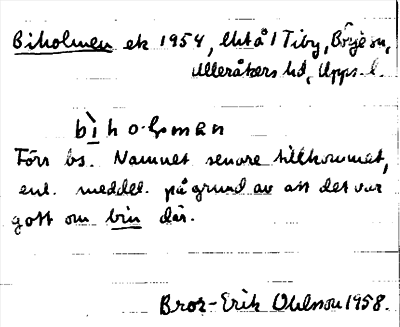 Biholmen ek 1954, Ekt å 1 Tiby, Börje sn,
Ulleråkers hd, Upps. l.
bì̱hoꞎmen
Förr bs. Namnet senare tillkommet,
enl. meddel. på grund av att det var
gott om bin där.
Bror-Erik Ohlsson 1958.